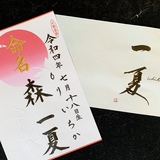 命名
令和四年七月十八日生
もり いちか
森 一夏
一夏